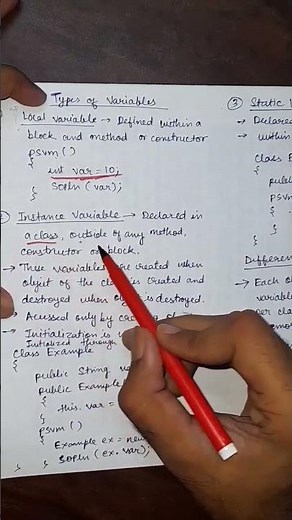 Types of Variables
Local variable → Defined within a
block and method or constructor
psvm ()
{
int var = 10;
Sopln (var);
}
Instance Variable → Declared in
a class, outside of any method,
constructor or block.
→ These variables are created when
object of the class is created and
destroyed when object is destroyed.
→ Acessed only by
→ Initialization is
Initialized through
Class Example
{
public String
public Example
{
this. var =
}
psvm ()
{
Example ex = new
Sopln (ex. var);
}
}
③ Static
→ Declared
→ within
Class
{
pu
psvm
{
Differen
→ Each o
variable
per cla
memo